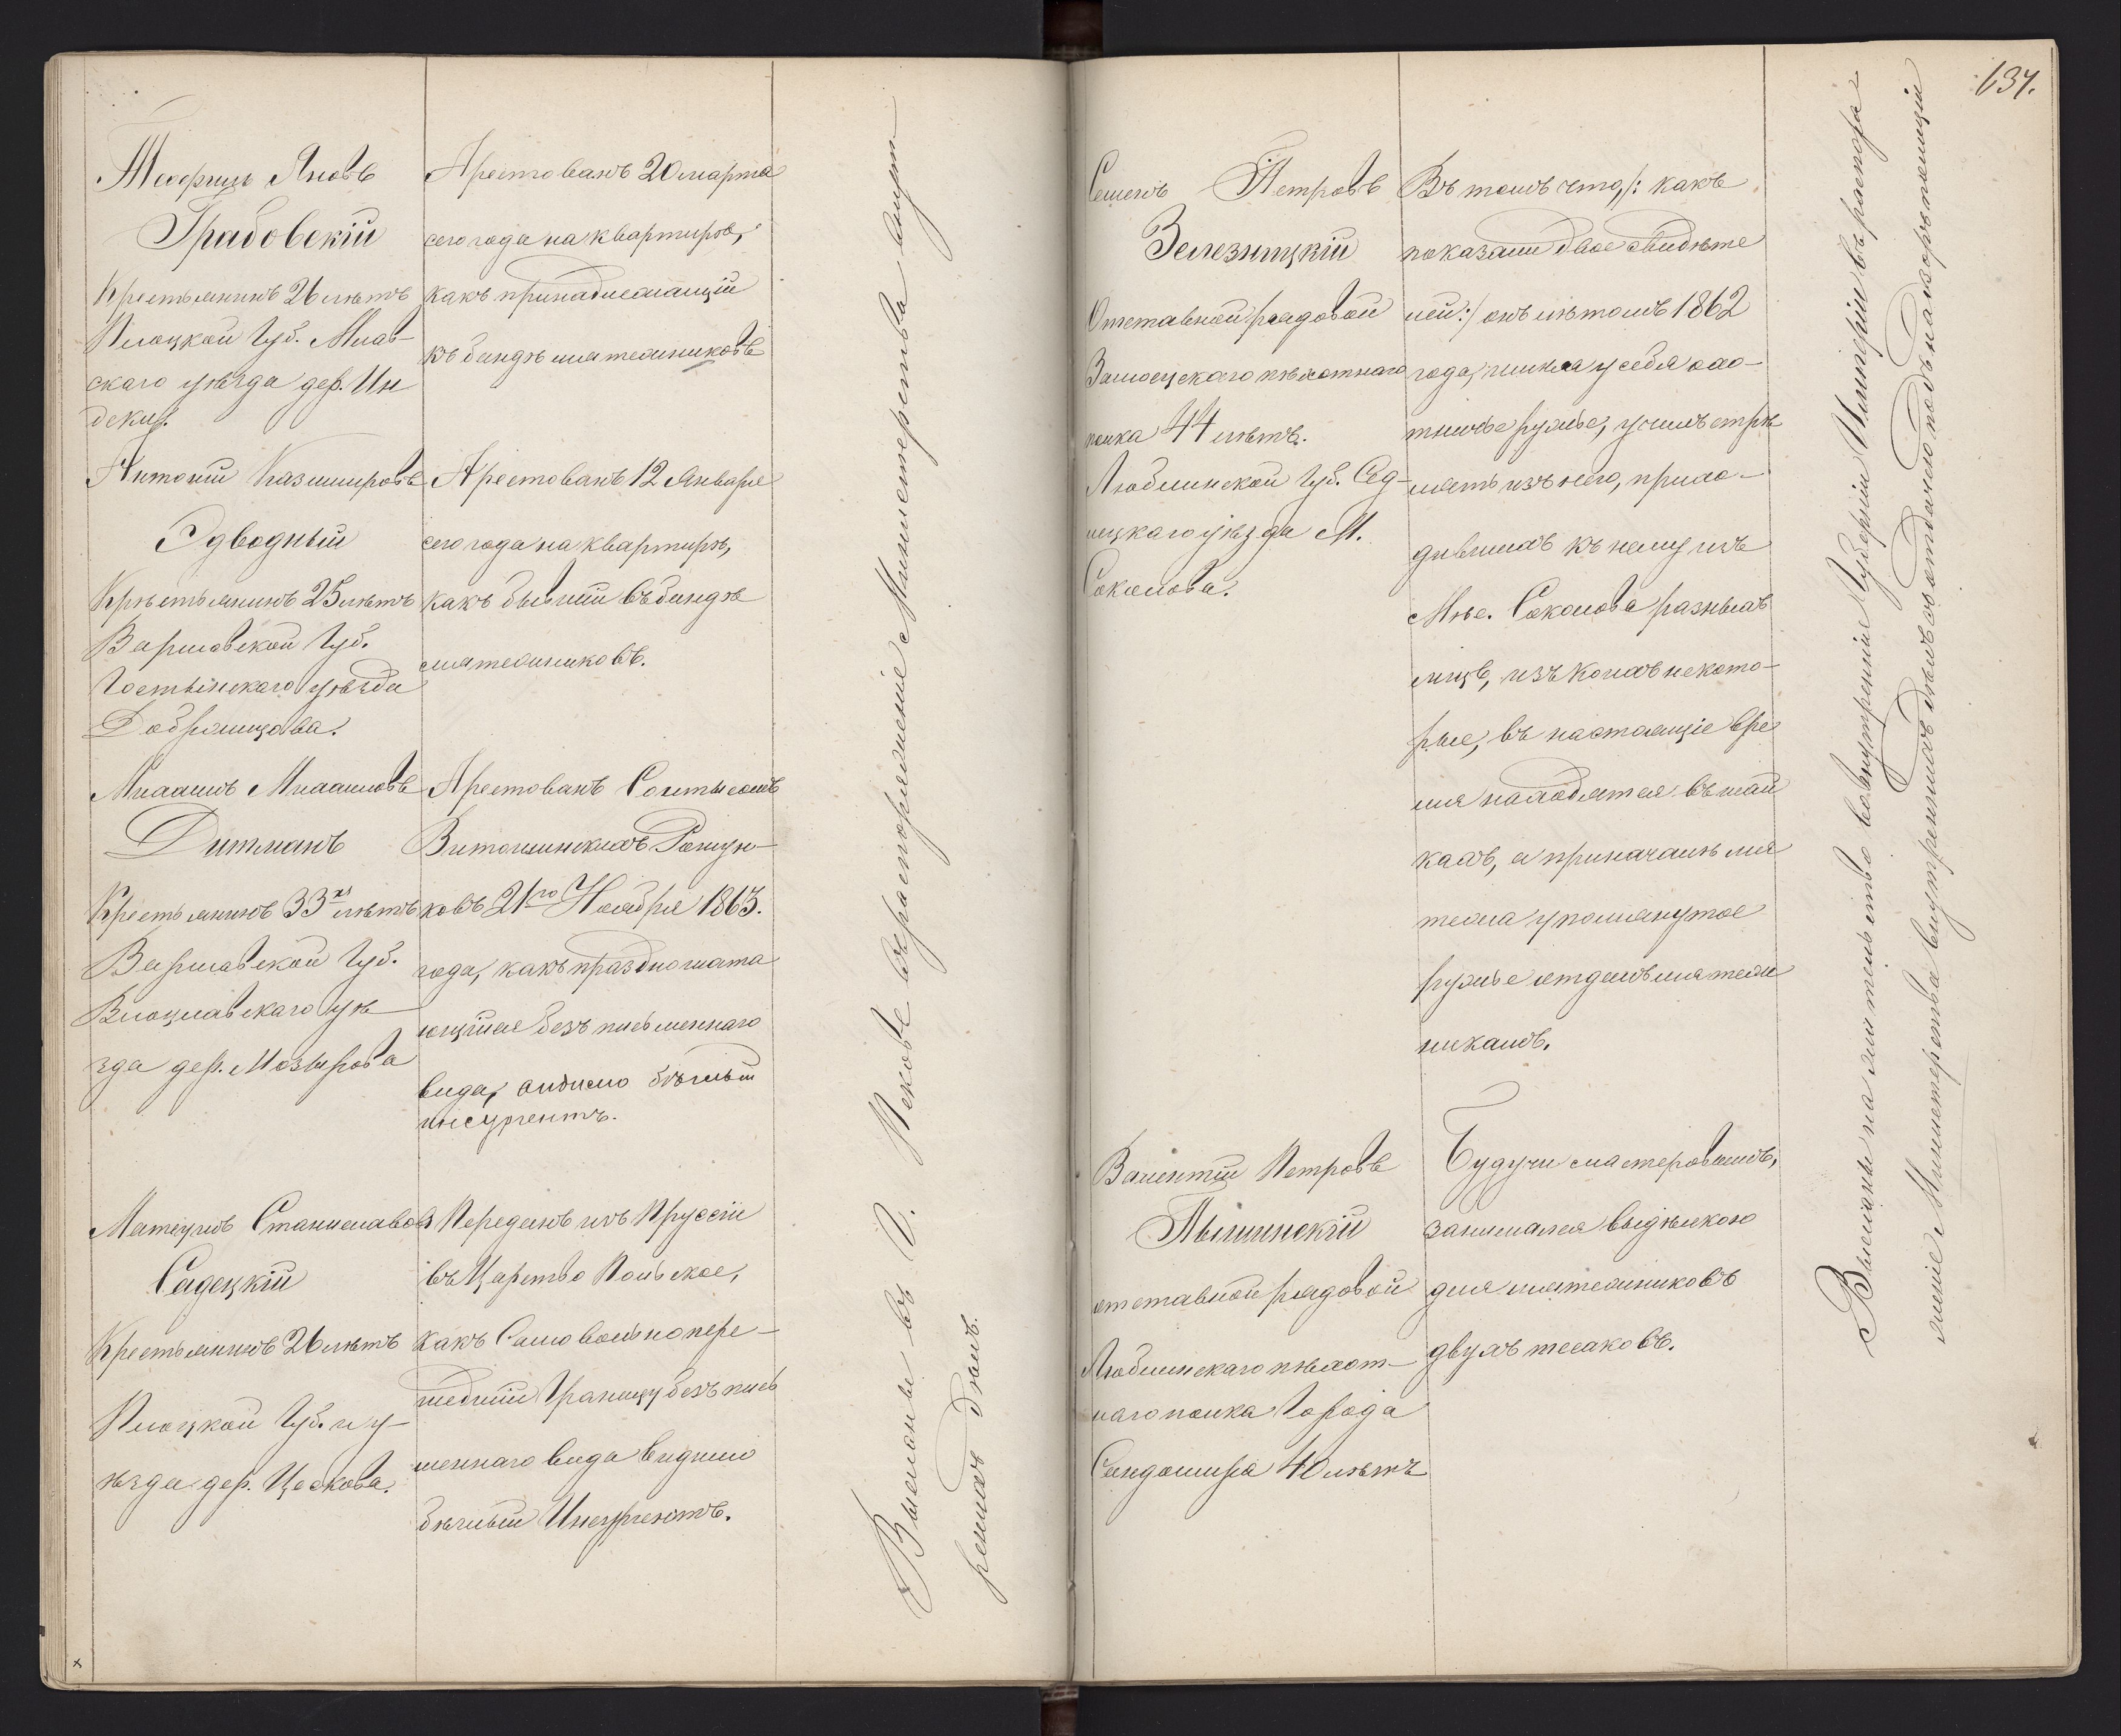 Яновъ
Грабовскій
Крестьянинъ 26 лѣтъ
Плоцкой Губ. Млав-
скаго уѣзда дер. Ин
деки.
Арестованъ 20 марта
сего года на квартирѣ,
какъ принадлежащій
къ бандѣ мятежниковъ
Антоній Казиміровъ
Одводный
Крѣстьянинъ 25 лѣтъ
Варшавской Губ.
Гостынскаго уѣзда
Арестованъ 12 Января
сего года на квартирѣ,
какъ бывшій въ бандѣ
мятежниковъ.
Михаилъ Михаиловъ
Дитманъ
Крестьянинъ 33хъ лѣтъ
Варшавской Губ.
Влоцлавскаго уѣ-
зда дер.
Арестованъ Солтысомъ
ковъ 21го Ноября 1863.
года, какъ праздношата
ющійся безъ письменнаго
вида, видимо бѣглый
инсургентъ.
Матеушъ Станиславовъ
Садецкій
Крестьянинъ 26 лѣтъ
Плоцкой Губ. и у-
ѣзда дер.
Переданъ изъ Пруссіи
въ Царство Польское,
какъ Самовольно пере-
шедшій Границу безъ пись
меннаго вида видимо
бѣглый Инсургентъ.
Высланы въ П. Псковъ въ распоряженіе Министерства внут
реннихъ Дѣлъ.
637.
Петровъ
Зелезницкій
Отставной рядовой
Замосцскаго пѣхотнаго
полка 44 лѣтъ.
Люблинской Губ. Сѣд-
лецкаго уѣзда М.
Соколова.
Въ томъ что, /: какъ
показали двое свидѣте
лей :/ онъ лѣтомъ 1862
года, имѣя у себя охо-
тничье ружье, училъ стрѣ
лять изъ него, прихо-
дившихъ къ нему изъ
Мѣс. Соколова разныхъ
лицъ, изъ коихъ некото-
рые, въ настоящіе вре
мя находятся въ шай
кахъ, а при началѣ мя
тежа упомянутое
ружье отдалъ мятеж
никамъ.
Валентій Петровъ
Пышинскій
отставной рядовой
Люблинскаго пѣхот-
наго полка Города
Сандомира 40 лѣтъ
Будучи мастеровымъ,
занимался выдѣлкою
для мятежниковъ
двухъ тесаковъ.
Высланы на жительство во внутреннія Губерніи Имперіи въ распоря-
женіе Министерства внутреннихъ дѣлъ съ отдачею подъ надзоръ полиціи